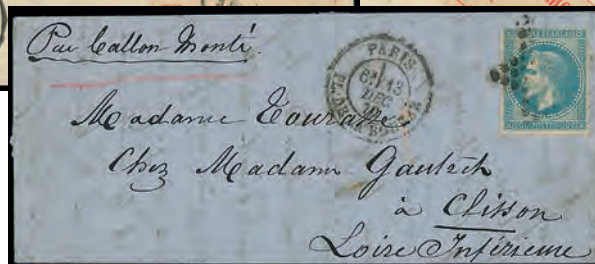 Par ballon Monté.
PARIS
6E 13
DEC
70
PL. DE LA BOURSE
Madame
Chez Madame
à Clisson
Loire Inférieure